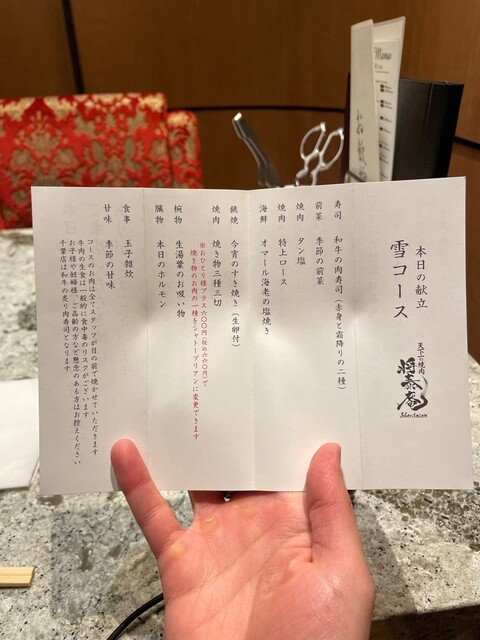 本日の献立
雪コース
天下一焼肉
将泰庵
Shoutaian
寿司 和牛の肉寿司(赤身と霜降りの二種)
前菜 季節の前菜
焼肉 タン塩
焼肉 特上ロース
海鮮 オマール海老の塩焼き
銚焼 今宵のすき焼き(生卵付)
焼肉 焼き物三種三切
※おひとり様プラス六〇〇円(税込六六〇円)で
焼き物のお肉の一種をシャトーブリアンに変更できます
椀物 生湯葉のお吸い物
臓物 本日のホルモン
食事 玉子雑炊
甘味 季節の甘味
コースのお肉は全てスタッフが目の前で焼かせていただきます
牛肉の生食は一般的に食中毒のリスクがございます
お子様や妊婦様・ご高齢の方など懸念のある方はお控えください
千葉店は和牛の炙り肉寿司となります
Menu